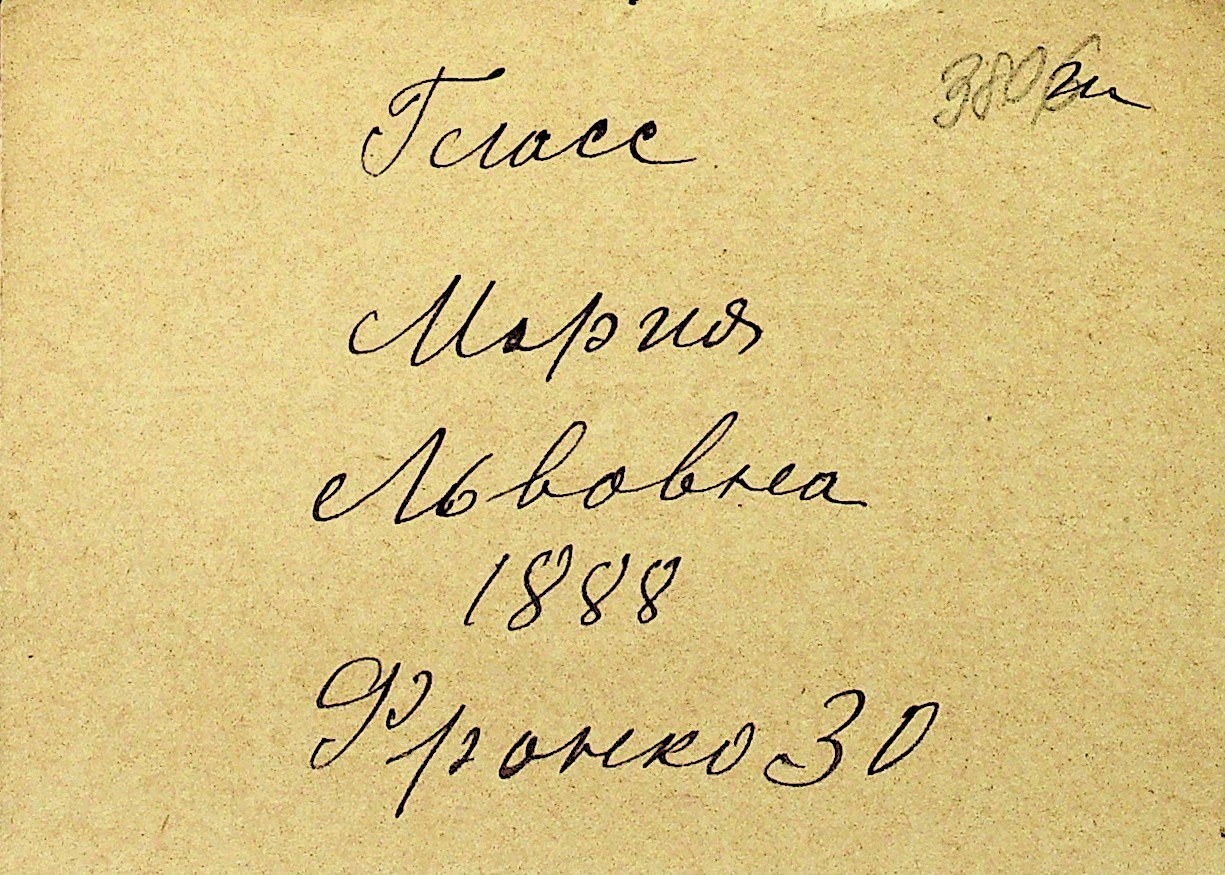 Гласс
Мария
Львовна
1888
Франко 30